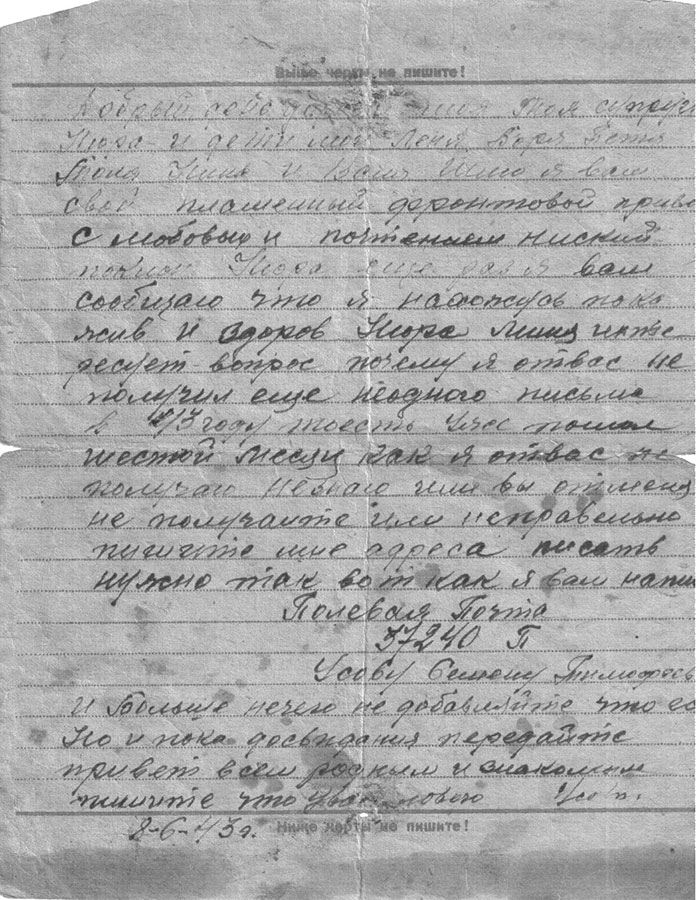 Выше черты не пишите!
Добрый супруг
Нюра и дети мои Леня Боря Петя
Толя Нина и Ваня Шлю я вам
свой пламенный фронтовой прив
с любовью и почтением ниский
поклон Нюра еще раз я вам
сообщаю что я нахожусь пока
жив и здоров Нюра Миня инте
ресует вопрос почему я отвас не
получил еще неодного письма
в 43 году тоесть уже пошол
шестой месяц как я отвас не
получаю незнаю или вы отменя
не получаите или неправельно
пишите мне адреса писать
нужно так вот как я вам напи
Полевая Почта
37240 П
Усову Семену Тимофеев
и Больше нечего не добавляйте что ес
Но и пока досвидания передайте
привет всем родным и знакомым
пишите что у вас нового Усо
8-6-43г.
Ниже черты не пишите!